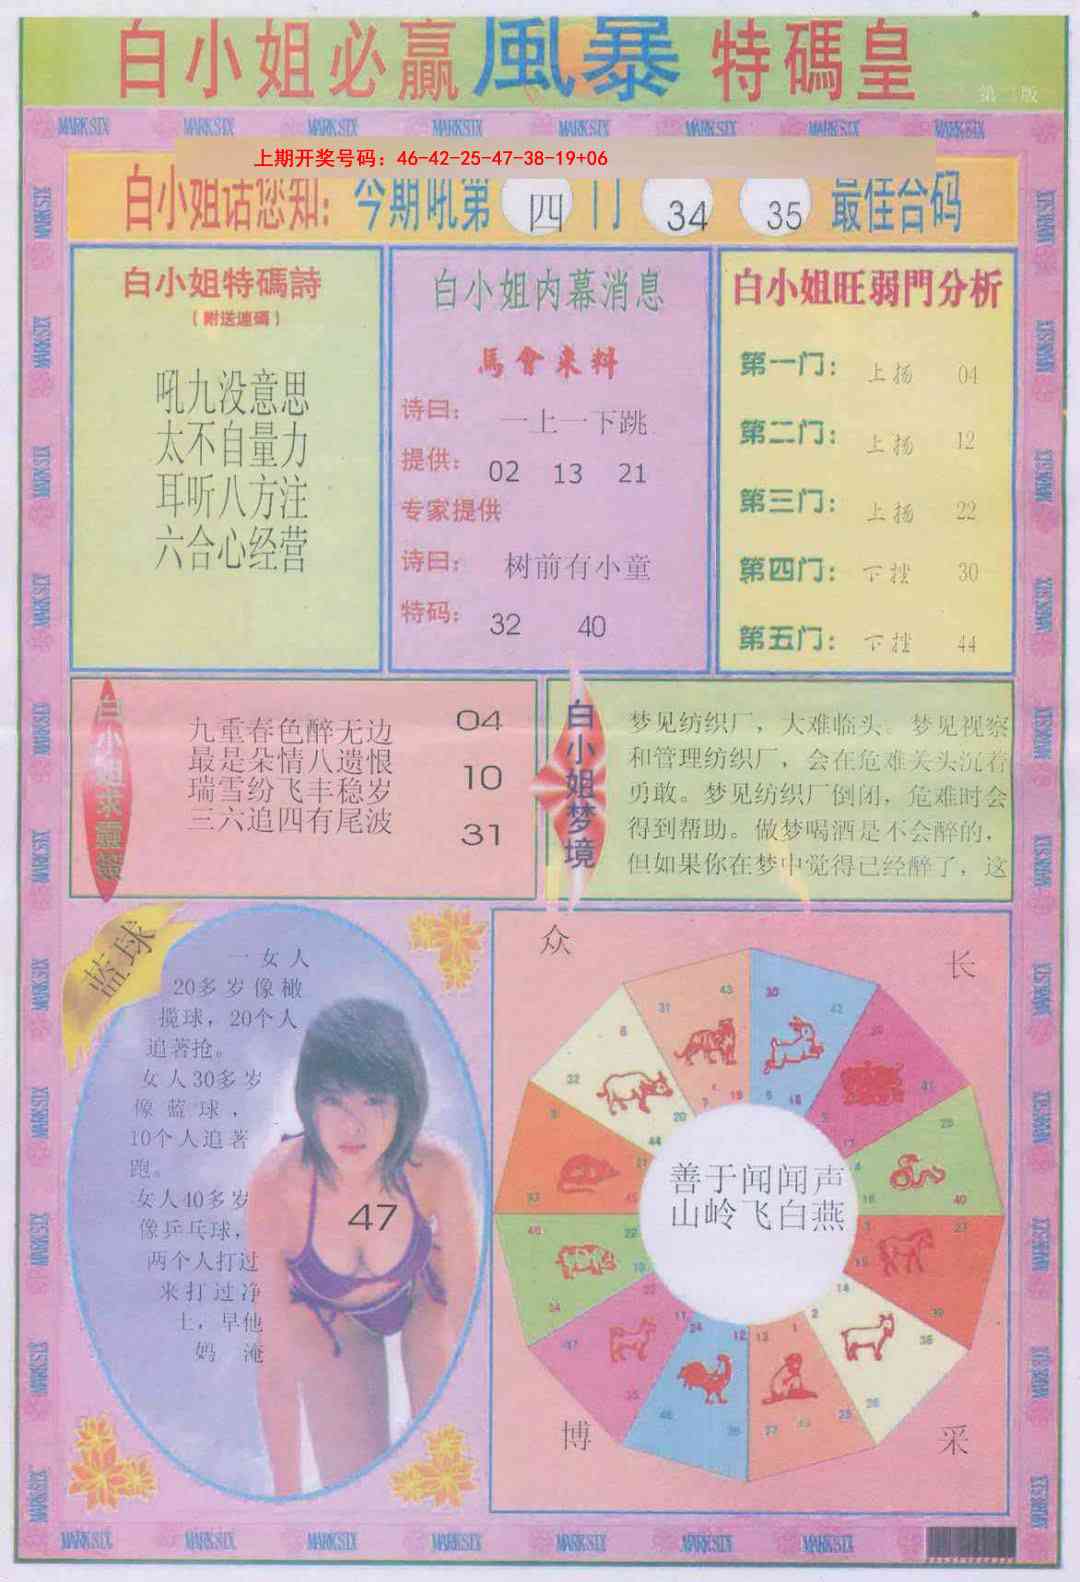 白小姐必赢風暴特碼皇
第二版
MARK SIX MARK SIX MARK SIX MARK SIX MARK SIX MARK SIX MARK SIX MARK SIX
上期开奖号码：46-42-25-47-38-19+06
白小姐话您知：今期吼第四门 34 35 最佳合码
白小姐特碼詩
（附送連碼）
吼九没意思
太不自量力
耳听八方注
六合心经营
白小姐内幕消息
馬會来料
诗曰： 一上一下跳
提供： 02 13 21
专家提供
诗曰： 树前有小童
特码： 32 40
白小姐旺弱門分析
第一门： 上扬 04
第二门： 上扬 12
第三门： 上扬 22
第四门： 下挫 30
第五门： 下挫 44
九重春色醉无边
最是朵情八遗恨
瑞雪纷飞丰稳岁
三六追四有尾波
04
10
31
白小姐梦境
梦见纺织厂，大难临头。梦见视察
和管理纺织厂，会在危难关头沉着
勇敢。梦见纺织厂倒闭，危难时会
得到帮助。做梦喝酒是不会醉的，
但如果你在梦中觉得已经醉了，这
蓝球
一女人
20多岁像橄
揽球，20个人
追著抢。
女人30多岁
像蓝球，
10个人追著
跑。
女人40多岁
像乒乓球，
两个人打过
来打过净
七，早他
妈 淹
47
众
长
善于闻闻声
山岭飞白燕
博
采
MARK SIX MARK SIX MARK SIX MARK SIX MARK SIX MARK SIX MARK SIX